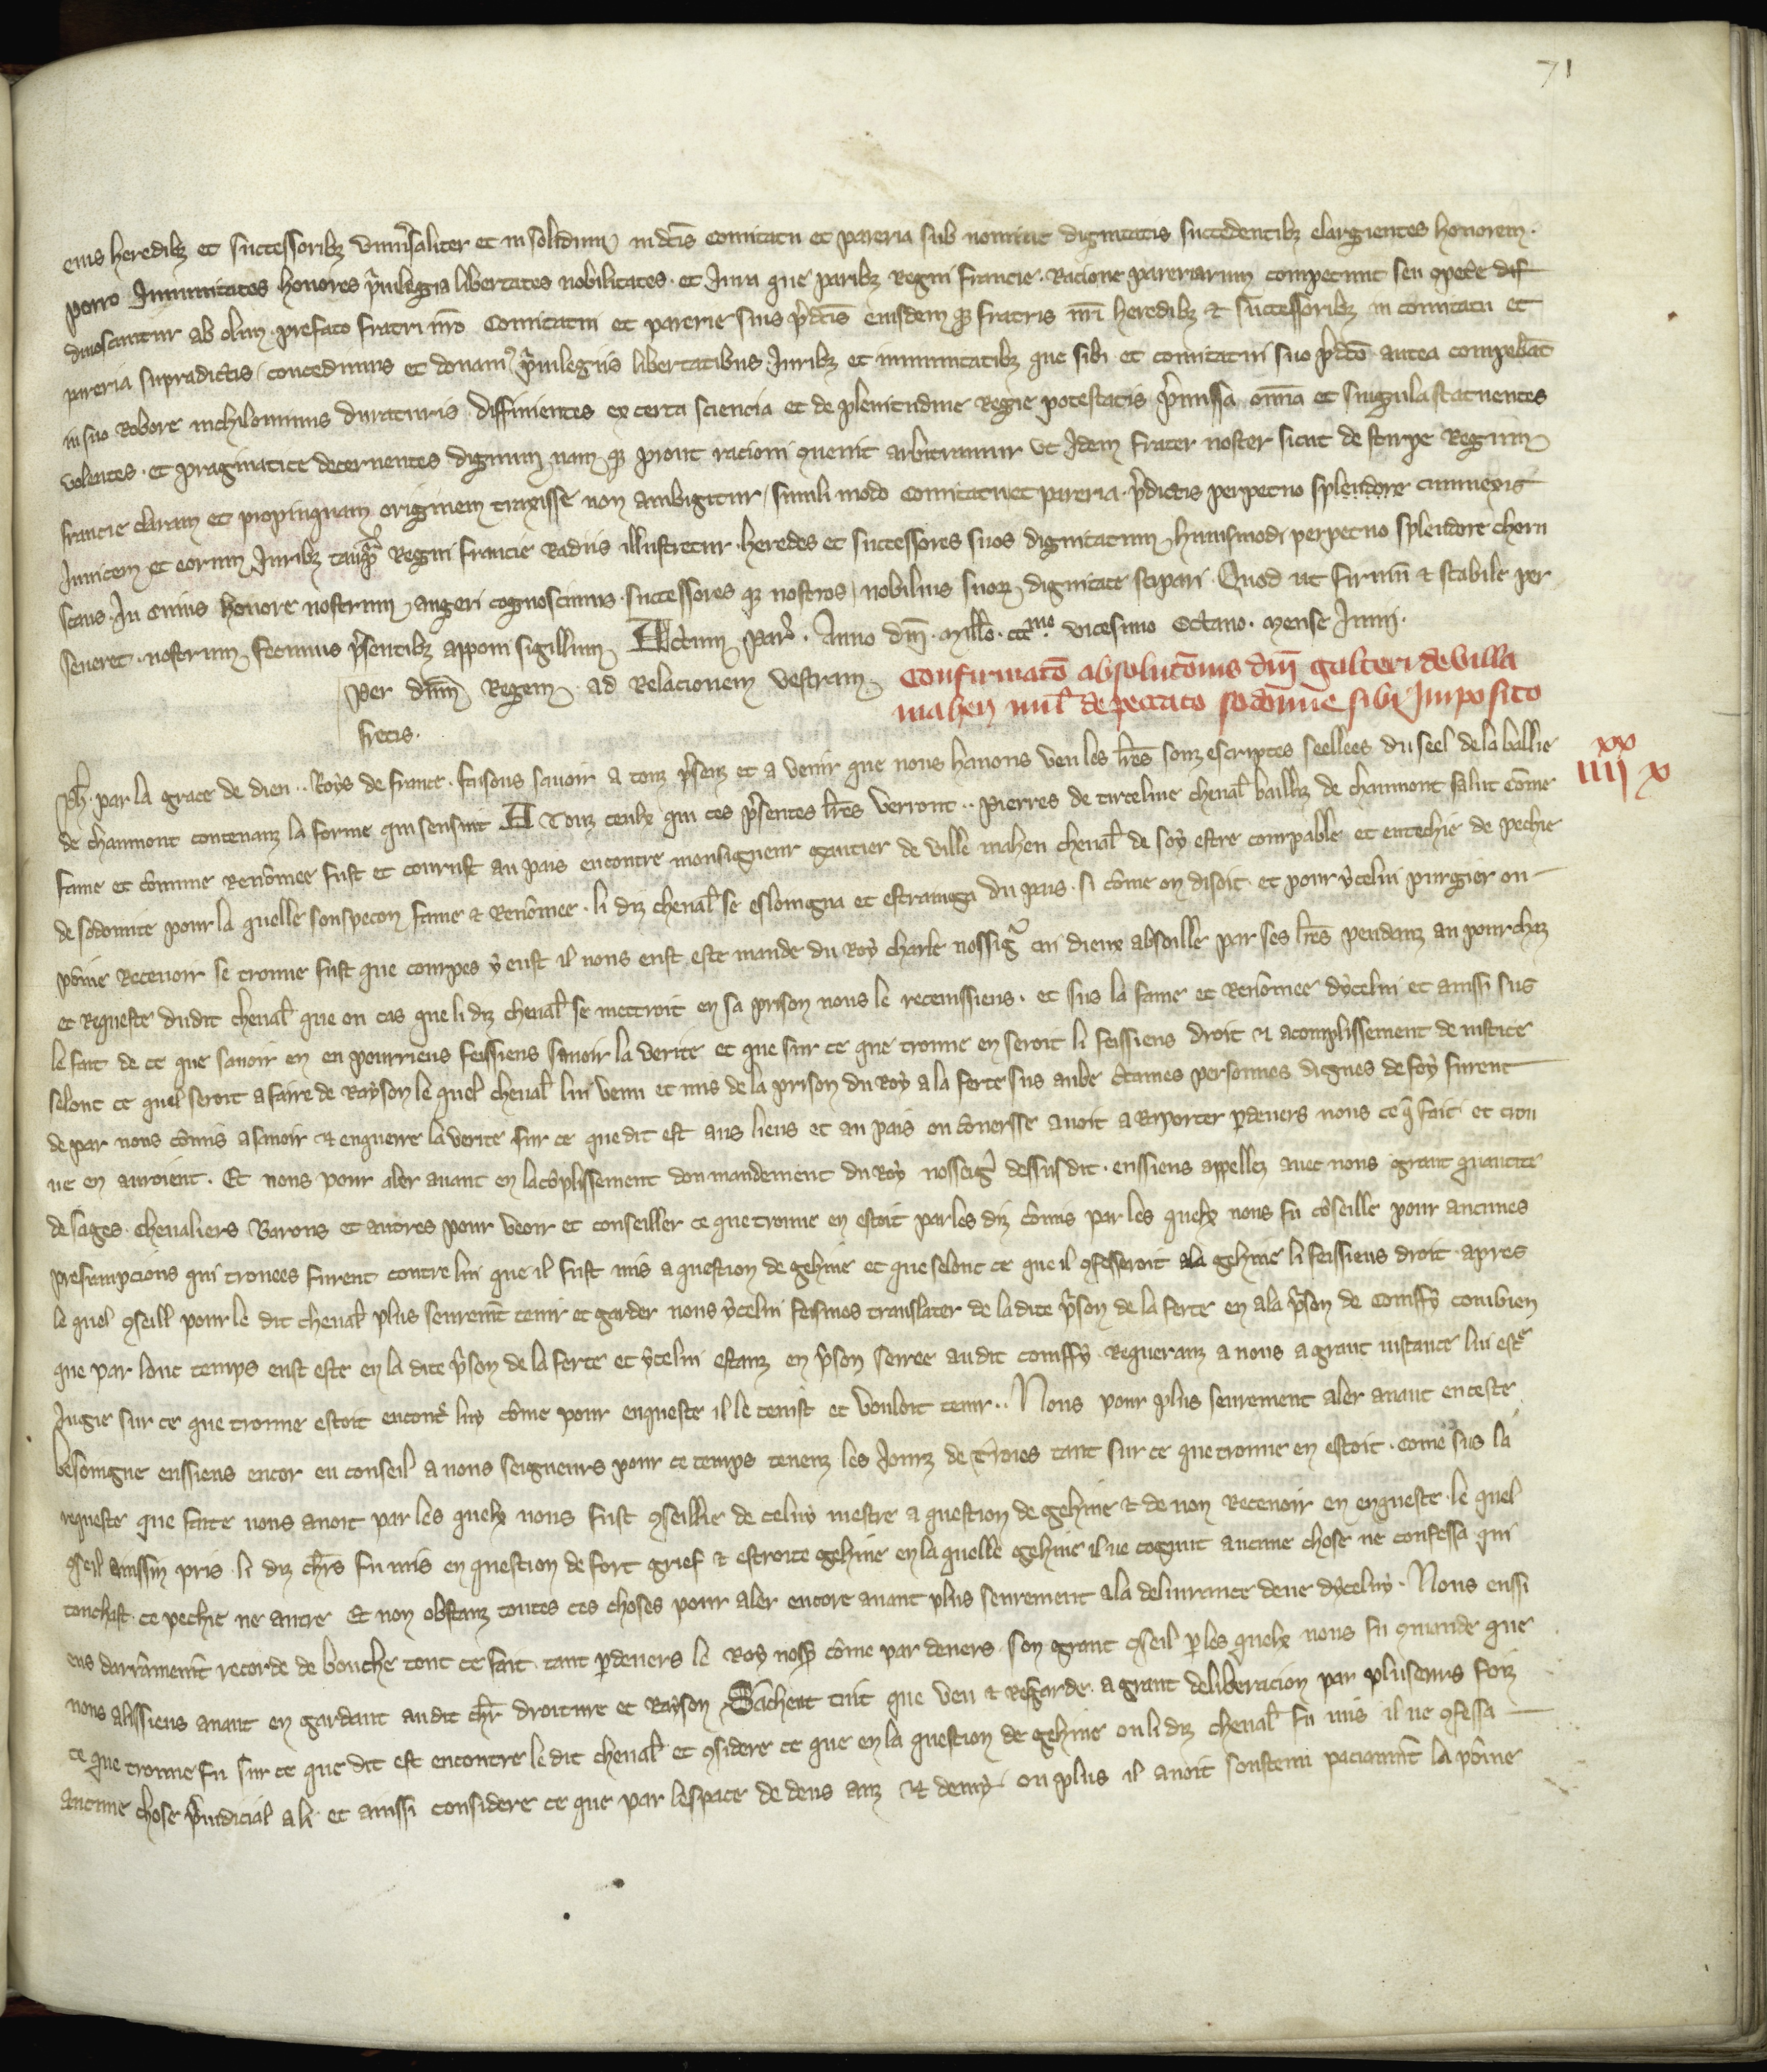 71
eius heredibz et successoribz uniu'saliter et in solidum in dc̄is comitatu et pareria sub nomine dignitatis succedentibz elargientes honorem.
porro Inmunitates honores p'uilegia libertates nobilitates. et Iura que paribz Regni francie. Racione pareriarum competunt seu ꝯpete' dif
dinoscuntur ab olim. prefato fratri nr̄o Comitatui et parerie suis p'dc̄is eiusdem qꝫ fratris nr̄i heredibz & successoribz in comitatu et
pareria supradictis / concedimus et donamꝰ p'uilegiis libertatibus Iuribz et inmunitatibz que sibi et comitatui suo p'dc̄o antea compebāt
in suo Robore nichilominus duraturis. diffinientes ex certa sciencia et de plenitudine Regie potestatis p'missa om̄ia et singula statuentes
volentes. et pragmatice decernentes dignum nam qꝫ prout racioni ꝯuenit arbitramur ut Idem frater noster sicut de stirpe Regum
francie claram et propinquam originem traxisse non ambigitur / simili modo comitatu et pareria. p'dictis perpetuo splendore
Inuicem et eorum Iuribz tanqꝫ Regni francie Radiis illustretur. heredes et successores suos dignitatum huiusmodi perpetuo splendore choru
scans. In cuius honore nostrum augeri cognoscimus. successores qꝫ nostros / nobilius suoꝝ dignitate stipari. Quod ut firmū & stabile per
seueret. nostrum fecimus p'sentibz apponi sigillum. Actum Par̄. Anno dn̄i. Mill̄o. ccc mo. vicesimo Octauo. mense Iunii.
Per dn̄m Regem. ad Relacionem vestram
fretis.
Confirmatō absolutōnis dn̄i galteri de villa
mahen mil̄. de peccato sodomie sibi Imposito
xx
iiii x
Ph'. par la grace de dieu.. Roys de france. faisons sauoir a touz p'senz et a venir que nous hauons veu les lr̄es souz escriptes seellees du seel de la ballie
de chaumont contenanz la forme qui sensuit A Touz ceulx qui ces p'sentes lr̄es verront.. Pierres de tirceline cheual' bailliz de chaumont salut Cōme
fame et cōmune renōmee fust et courust au pais encontre monsigneur gautier de ville mahen cheual' de soy estre courpable et entechie de pechie
de sodomite pour la quelle souspecon fame & Renōmee. li diz cheual' se esloingna et estrainga du pais. si cōme on disoit. et pour ycelui purgier ou
poīne Receuoir se trouue fust que courpes y eust il nous eust este mande du Roy Charle nossigr' cui dieux absoille par ses lr̄es pendenz au pourchaz
et Requeste dudit cheual' que ou cas que li diz cheual' se mettroit en sa prison nous le receuissiens. et sus la fame et Renōmee dycelui et aussi sus
le fait de ce que sauoir en en pourriens feissiens sauoir la verite et que sur ce que trouue en seroit li feissiens droit & acomplissement de iustice
selonc ce quel seroit a faire de Rayson le quel cheual' lui venu et mis de la prison du Roy a la ferte sus aube c'taines personnes dignes de foy furent
de par nous cōmis a sauoir & enquerre la verite sur ce que dit est aus lieus et au pais ou cōuersse auoit a Raporter p̱deuers nous ce q̄ fait et trou
ue en auroient. Et nous pour aler auant en lacōplissement dou mandement du Roy nosseigr' dessusdit. enssiens appellez auec nous grant quantite
de sages. cheualiers Barons et autres pour veoir et conseiller ce que trouue en estoit par les diz cōmis par les quelx nous fu cōseille pour aucunes
presumpcions qui trouees furent contre lui que il fust mis a question de gehine et que selonc ce que il ꝯfesseroit ala gehine li feissiens droit apres
le quel ꝯseill pour le dit cheual' plus seuremēt tenir et garder nous ycelui feismes translater de la dite p'son de la ferte en ala p'son de Coiffy combien
que par lonc temps eust este en la dite p'son de la ferte et ycelui estanz en p'son serree audit coiffy. Requeranz a nous a grant instance lui estr̄
Iugie sur ce que trouue estoit encont' luy cōme pour enqueste il le tenist et vouloit tenir.. Nous pour plus seurement aler auant en ceste
besoingne enssiens encor eu conseil a nous seigneurs pour ce temps tenenz les Iourz de Troies tant sur ce que trouue en estoit. come sus la
requeste que faite nous auoit par les quelx nous fust ꝯseillie de celuy mestre a question de gehine & de non Receuoir en enqueste. le quel
ꝯseil ainssin pris. li diz chr̄s fu mis en question de fort grief & estroite gehine en la quelle gehine il ne cognut aucune chose ne confessa qui
touchast. ce pechie ne autre Et non obstanz toutes ces choses pour aler encore auant plus seurement a la deliurance deue dyceluy. Nous enssi
ens darrāmenit recorde de bouche tout ce fait. tant p̱deuers le Roy nosꝫ cōme par deuers. son grant ꝯseil p̱les quelx nous fu ꝯmande que
nous alissiens auant en gardant audit chr̄ droiture et Rayson Sachent tuit que veu & Regarde. a grant deliberacion par pluseurs foiz
ce que trouue fu sur ce que dit est encontre le dit cheual' et ꝯsidere ce que en la question de gehine ou li diz cheual' fu mis il ne ꝯfessa
aucune chose p'iudicial a li. et aussi considere ce que par lespace de deus anz & demy ou plus il auoit soustenu paciāmēt la poīne